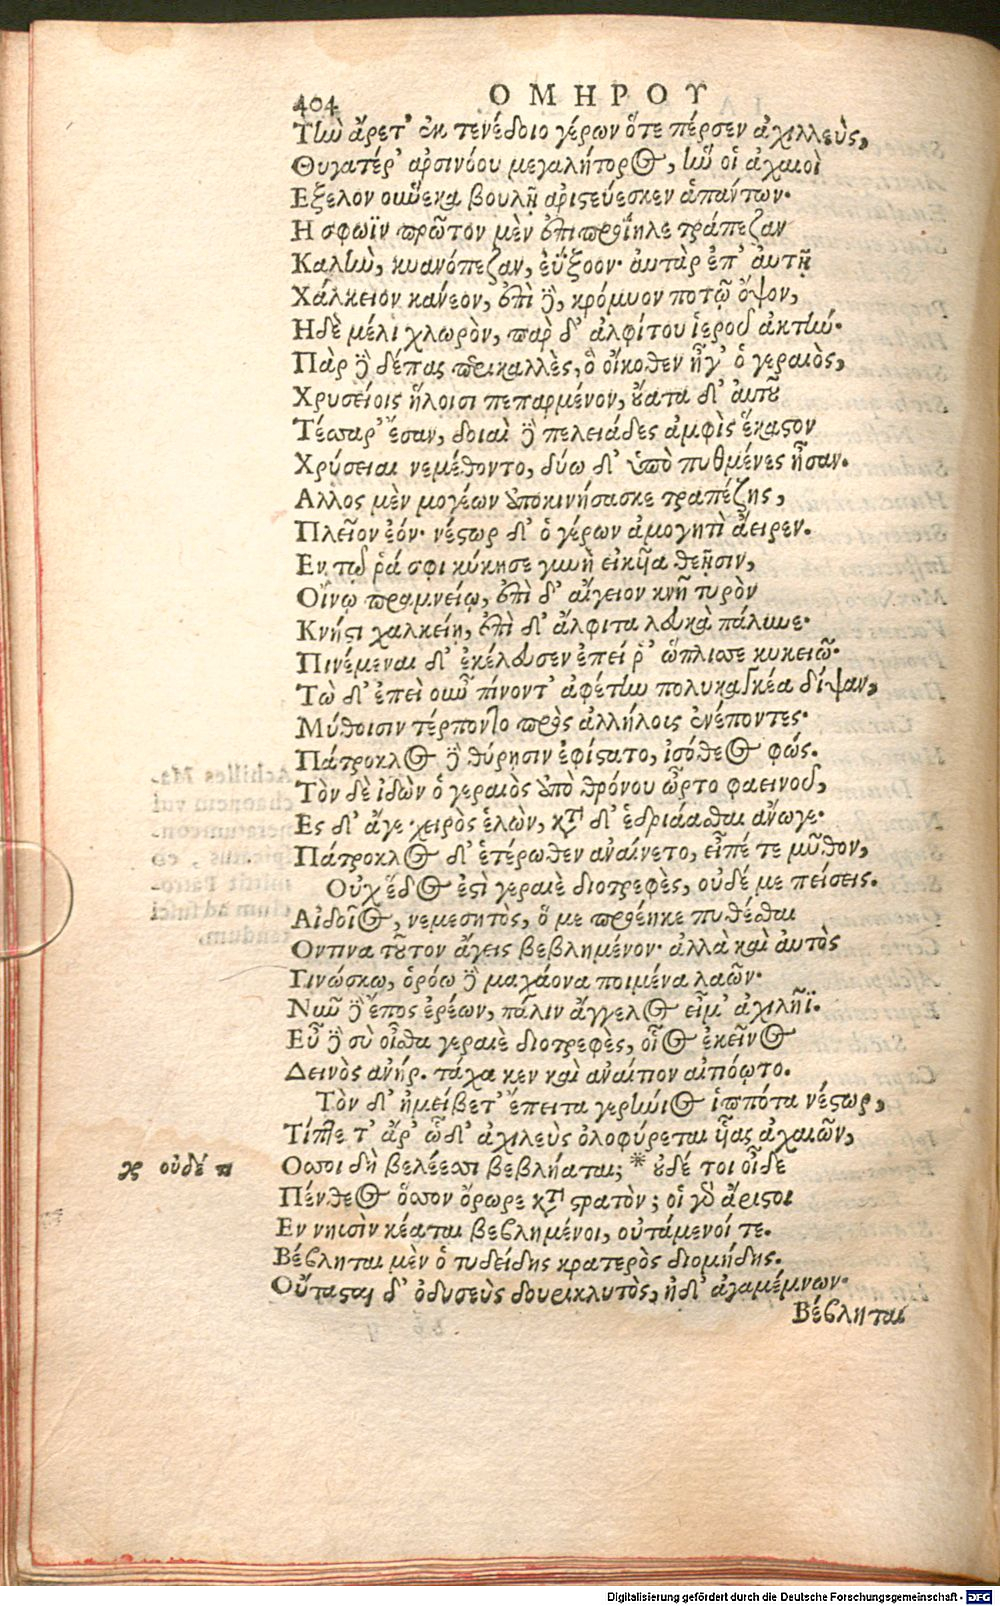 404 ΟΜΗΡΟΥ
Τὴν ἄρετ' ἐκ τενέδοιο γέρων ὅτε πέρσεν ἀχιλλεὺς,
Θυγατέρ' ἀρσινόου μεγαλήτορος, ἣν οἱ ἀχαιοὶ
Εξελον οὕνεκα βουλῇ ἀριστεύεσκεν ἁπάντων·
Η σφωϊν πρῶτον μὲν ἐπιπροΐηλε τράπεζαν
Καλὴν, κυανόπεζαν, ἐΰξοον· αὐτὰρ ἐπ' αὐτῇ
Χάλκειον κάνεον, ἐπὶ δὲ, κρόμυον ποτῷ ὄψον,
Ηδὲ μέλι χλωρὸν, παρ δ' ἀλφίτου ἱεροῦ ἀκτήν·
Πὰρ δὲ δέπας περικαλλὲς, ὃ οἴκοθεν ἦγ' ὁ γεραιὸς,
Χρυσείοις ἥλοισι πεπαρμένον, οὔατα δ' αὐτοῦ
Τέσσαρ' ἔσαν, δοιαὶ δὲ πελειάδες ἀμφὶς ἕκαστον
Χρύσειαι νεμέθοντο, δύω δ' ὑπὸ πυθμένες ἦσαν.
Αλλος μὲν μογέων ἀποκινήσασκε τραπέζης,
Πλεῖον ἐόν· νέστωρ δ' ὁ γέρων ἀμογητὶ ἄειρεν.
Εν τῷ ῥά σφι κύκησε γυνὴ εἰκυῖα θεῇσιν,
Οἴνῳ πραμνείῳ, ἐπὶ δ' αἴγειον κνῆ τυρὸν
Κνήστι χαλκείῃ, ἐπὶ δ' ἄλφιτα λευκὰ πάλυνε·
Πινέμεναι δ' ἐκέλευσεν ἐπεί ῥ' ὥπλισσε κυκειῶ·
Τὼ δ' ἐπεὶ οὖν πίνοντ' ἀφέτην πολυκαγκέα δίψαν,
Μύθοισιν τέρποντο πρὸς ἀλλήλοις ἐνέποντες·
Πάτροκλος δὲ θύρῃσιν ἐφίστατο, ἰσόθεος φώς.
Τὸν δὲ ἰδὼν ὁ γεραιὸς ἀπὸ θρόνου ὦρτο φαεινοῦ,
Ες δ' ἄγε χειρὸς ἑλὼν, κατὰ δ' ἑδριάασθαι ἄνωγε·
Πάτροκλος δ' ἑτέρωθεν ἀναίνετο, εἶπέ τε μῦθον,
Οὐχ ἕδος ἐστὶ γεραιὲ διοτρεφὲς, οὐδέ με πείσεις.
Αἰδοῖος, νεμεσητὸς, ὅ με προέηκε πυθέσθαι
Οντινα τοῦτον ἄγεις βεβλημένον· ἀλλὰ καὶ αὐτὸς
Γινώσκω, ὁρόω δὲ μαχάονα ποιμένα λαῶν·
Νῦν δὲ ἔπος ἐρέων, πάλιν ἄγγελος εἶμ' ἀχιλῆϊ.
Εὖ δὲ σὺ οἶσθα γεραιὲ διοτρεφὲς, οἷος ἐκεῖνος
Δεινὸς ἀνήρ. τάχα κεν καὶ ἀναίτιον αἰτιόῳτο.
Τὸν δ' ἠμείβετ' ἔπειτα γερήνιος ἱππότα νέστωρ,
Τίπτε τ' ἄρ' ὧδ' ἀχιλεὺς ὀλοφύρεται υἷας ἀχαιῶν,
χρ οὐδέ τι Οσσοι δὴ βελέεσσι βεβλήαται; * οὐδέ τοι οἶδε
Πένθεος ὅσσον ὄρωρε κατὰ στρατὸν; οἱ γὰρ ἄριστοι
Εν νηυσὶν κέαται βεβλημένοι, οὐτάμενοί τε.
Βέβληται μὲν ὁ τυδείδης κρατερὸς διομήδης.
Οὔτασται δ' ὀδυσεὺς δουρικλυτὸς, ἠδ' ἀγαμέμνων·
Βέβληται
Digitalisierung gefördert durch die Deutsche Forschungsgemeinschaft - DFG